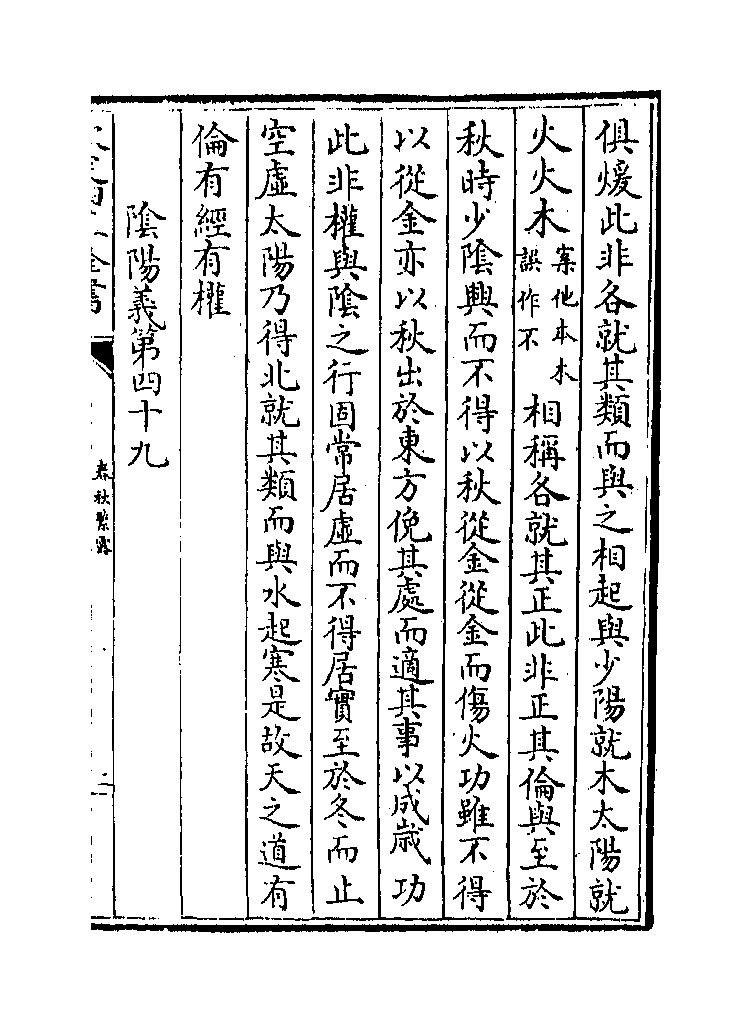 俱煖此非各就其類而與之相起與少陽就木太陽就
火火木案他本木誤作不相稱各就其正此非正其倫與至於
秋時少陰興而不得以秋從金從金而傷火功雖不得
以從金亦以秋出於東方俛其處而適其事以成歲功
此非權與陰之行固常居虛而不得居實至於冬而止
空虛太陽乃得北就其類而與水起寒是故天之道有
倫有經有權
陰陽義第四十九
春秋繁露
二